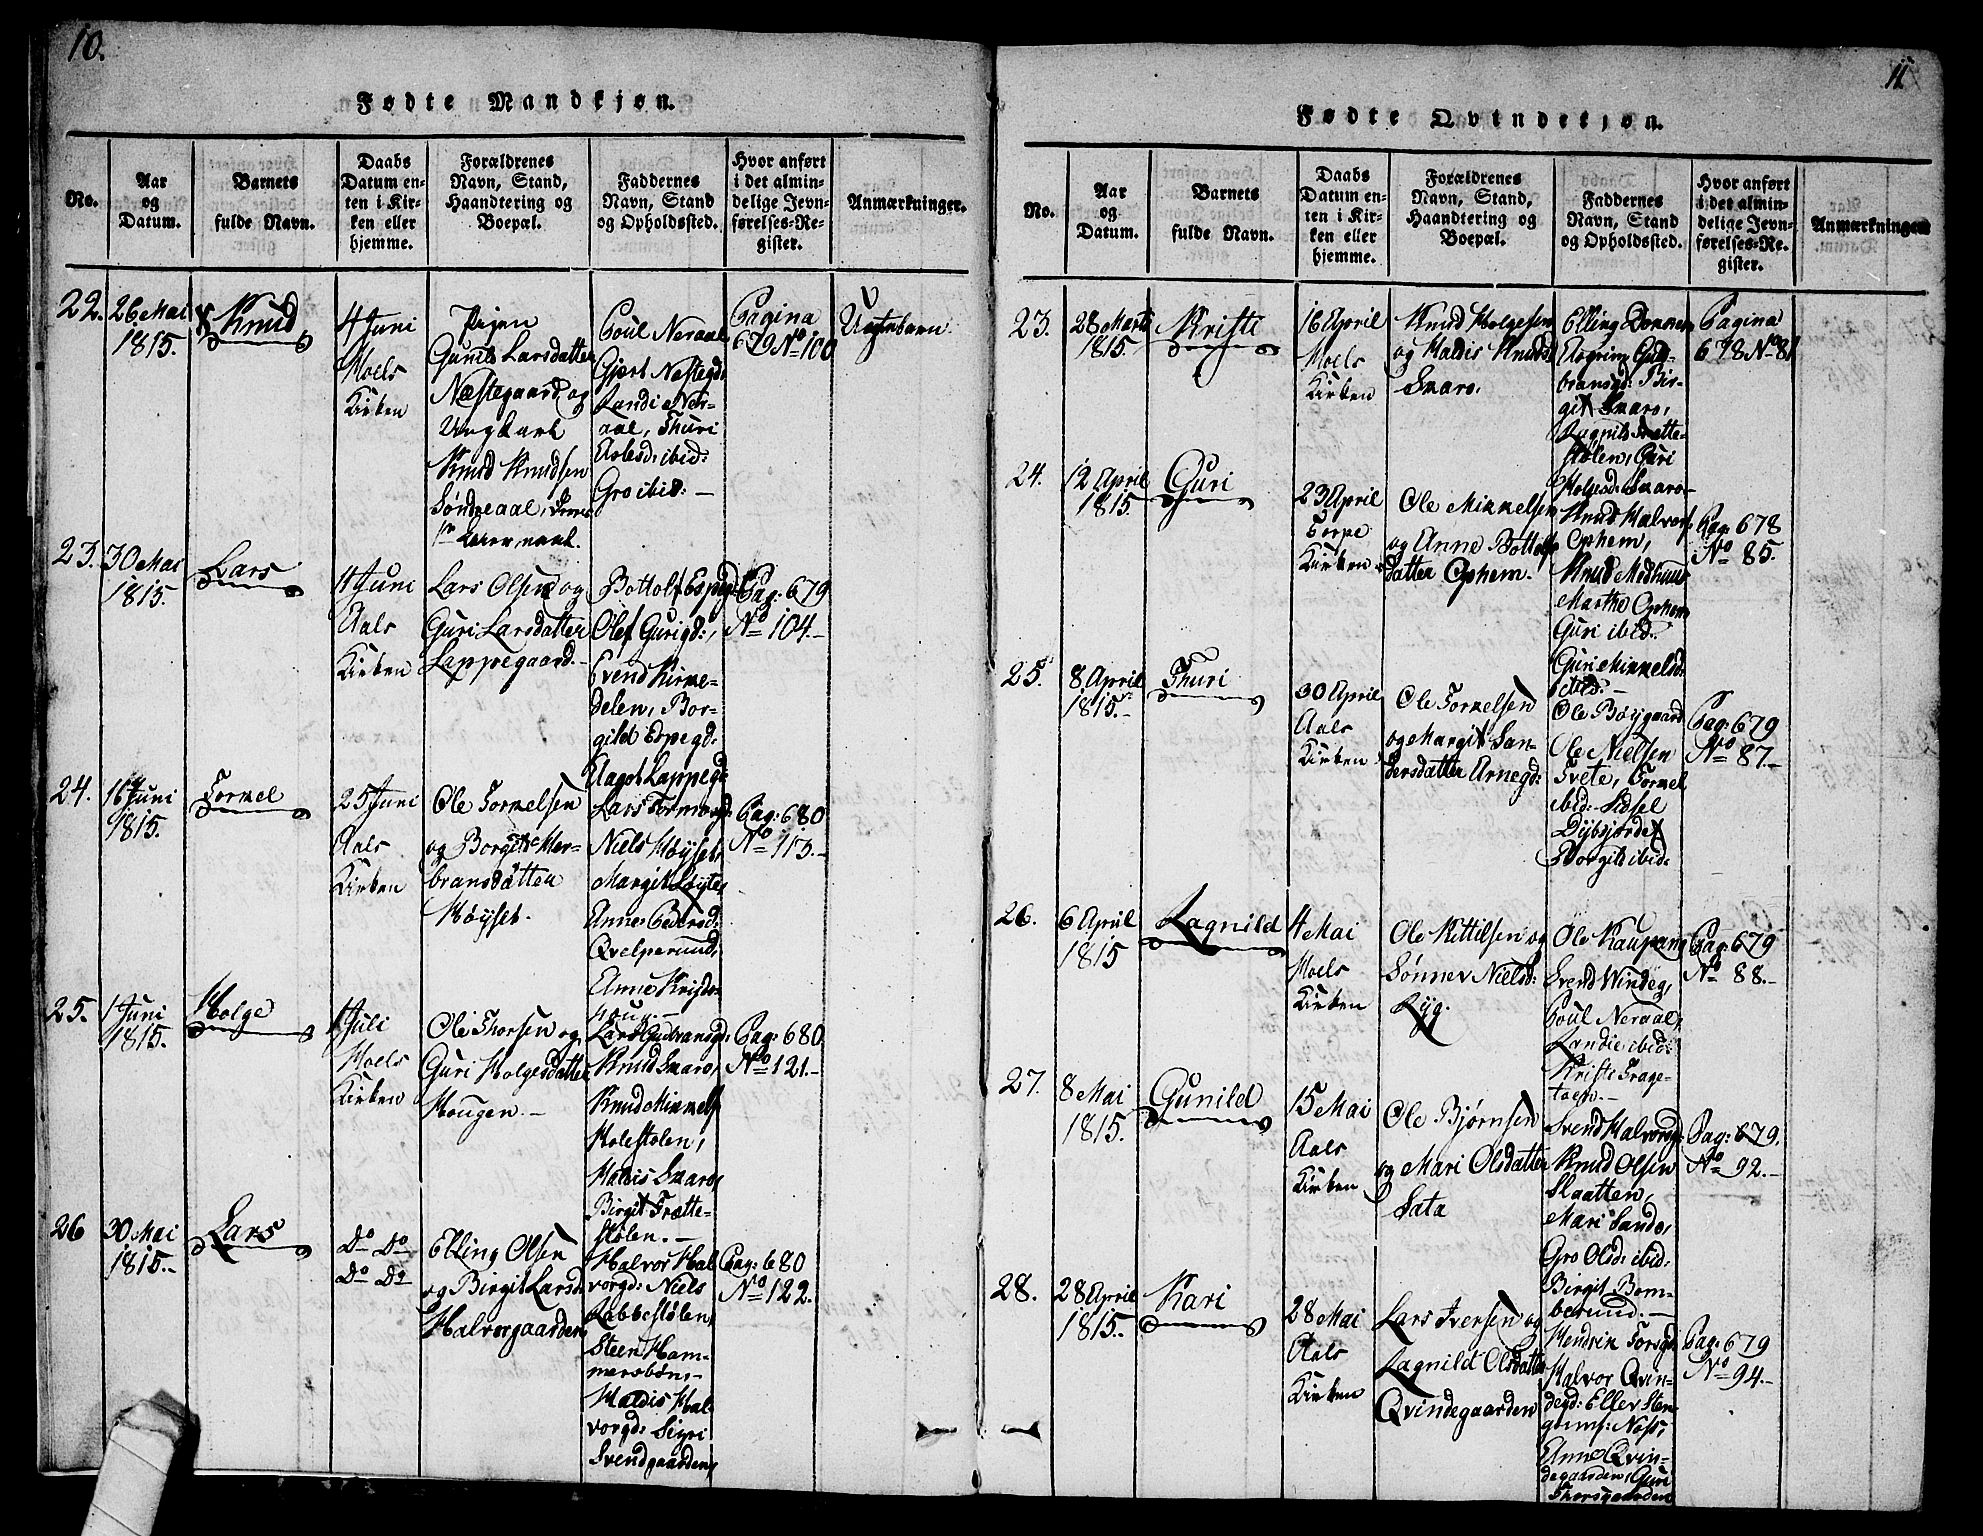 10.
Fødte Mandkjøn.
No.
Aar
og
Datum.
Barnets
fulde Navn.
Daabs
Datum en-
ten i Kir-
ken eller
hjemme.
Forældrenes
Navn, Stand,
Haandtering og
Boepæl.
Faddernes
Navn, Stand
og Opholdssted.
Hvor anført
i det almin-
delige Jevn-
førelses-Re-
gister.
Anmærkninger.
22.
26 Mai
1815.
Knud
4 Juni
Hoels
Kirken
Pigen
Gunild Larsdatter
Næstegaard og
Ungkarl
Knud Knudsen
Søndreaal,
Poul Neraal
Gjert Næstegd:
Randi Ner-
aal, Thuri
ibid:
Gro ibid:
Pagina
679 No 100
Uægtebarn
23.
30 Mai
1815.
Lars
4 Juni
Aals
Kirken
Lars Olsen og
Guri Larsdatter
Lappegaard.
Bottolf Espegd:
Olef Gurigd:,
Svend Kirke-
delen, Bor-
gild Espegd:
Aagot Lappegd:
Pag: 679
No 104.
24.
16 Juni
1815.
Torkel
25 Juni
Aals
Kirken
Ole Torkelsen
og Borgild Her-
bransdatter
Høyset.
Lars Tormodsgd
Niels Høyset,
Margit Løyte,
Anne Pedersd:
Qvelperud,
Anne
houg.
Pag: 680
No 113.
25.
1 Juni
1815.
Holge
1 Juli
Hoels
Kirken
Ole Thorsen og
Guri Holgesdatter
Hougen.
Lars Gulbransgd:
Knud Skaro,
Knud Mikkels
Holestolen,
Haldis Skaro,
Birgit Frette-
stølen.
Pag: 680
No 121.
26
30 Mai
1815.
Lars
Do Do
Do Do
Elling Olsen
og Birgit Larsd:
Halvorgaarden
Halvor Hal-
vorgd: Niels
Rabbestølen,
Steen Ham-
mersbøn,
Haldis Hal-
vorgd: Sigri
Svendgaarden,
Pag: 680
No 122.
11
Fødte Qvindekjøn.
No.
Aar
og
Datum.
Barnets
fulde Navn.
Daabs
Datum en-
ten i Kir-
ken eller
hjemme.
Forældrenes
Navn, Stand,
Haandtering og
Boepæl.
Faddernes
Navn, Stand
og Opholdssted.
Hvor anført
i det almin-
delige Jevn-
førelses-Re-
gister.
Anmærkninger
23.
28 Marti
1815.
Kristi
16 April
Hoels
Kirken
Knud Holgesen
og Haldis Knudsd
Skaro.
Elling
Asgrim Gul-
bransgd: Bir-
git Skaro,
Ragnild Frette-
stølen, Guri
Holgesd: Skaro
Pagina
678 No 81
24.
12 April
1815.
Guri
23 April
Torpe
Kirken
Ole Mikkelsen
og Anne Bottolfs
datter Ophem.
Knud Halvors
Ophem,
Knud Medhuus
Marthe Ophem
Guri ibid.
Guri Mikkelsd:
ibid:
Pag: 678
No 85.
25.
8 April
1815.
Thuri
30 April
Aals
Kirken
Ole Torkelsen
og Margit San-
dersdatter Arnegd:
Ole Bøygaard
Ole Nielsen
Tvete, Torkel
ibid: Sidsel
Dybsjorde,
Borgild ibid:
Pag: 679
No 87.
26.
6 April
1815
Ragnild
4 Mai
Hoels
Kirken
Ole Kittilsen og
Sønnev Nielsd:
Ryg.
Ole Kaupang
Svend Windeg,
Poul Neraal,
Randie ibid:
Kristi Trage-
toen.
Pag: 679
No 88.
27.
8 Mai
1815.
Gunild
15 Mai
Aals
Kirken
Ole Bjørnsen
og Mari Olsdatter
Sata
Svend Halvorsgd:
Knud Olsen
Slaatten,
Mari Sando,
Gro Olsd: ibid:
Birgit Bom-
berund.
Pag: 679.
No 92.
28.
28 April
1815.
Kari
28 Mai
Aals
Kirken
Lars Iversen og
Ragnild Olsdatter
Qvindegaarden
Hendrik Torsgd:
Halvor Qvin-
degd: Eller Sten-
Anne Qvin-
degaarden, Guri
Thorsgaarden
Pag: 679
No 94.